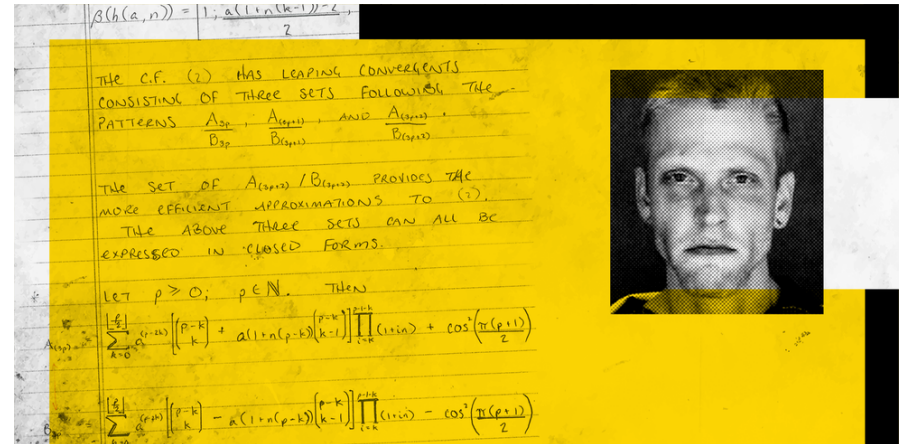 β(h(a,n)) = [1; a(1+n(k-1))-2 / 2,
THE C.F. (2) HAS LEAPING CONVERGENTS
CONSISTING OF THREE SETS FOLLOWING THE
PATTERNS A₃ₚ/B₃ₚ, A₍₃ₚ₊₁₎/B₍₃ₚ₊₁₎, AND A₍₃ₚ₊₂₎/B₍₃ₚ₊₂₎.
THE SET OF A₍₃ₚ₊₂₎/B₍₃ₚ₊₂₎ PROVIDES THE
MORE EFFICIENT APPROXIMATIONS TO (2).
THE ABOVE THREE SETS CAN ALL BE
EXPRESSED IN CLOSED FORMS.
LET p ≥ 0; p ∈ ℕ. THEN
A₍₃ₚ₎ = ∑_{k=0}^{⌊p/2⌋} a^(p-2k) [(p-k k) + a(1+n(p-k)(p-k k-1)] ∏_{i=k}^{p-1-k} (1+in) + cos²(π(p+1)/2)
B₃ₚ ∑ a^(p-2k) [(p-k k) - a(1+n(p-k)(p-k k-1)] ∏_{i=k}^{p-1-k} (1+in) - cos²(π(p+1)/2)